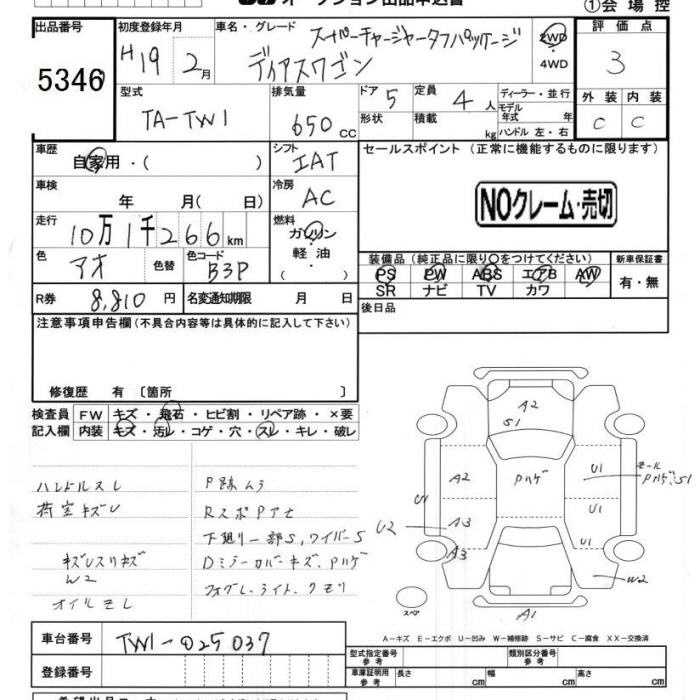 オークション出品申込書
①会場控
出品番号
5346
初度登録年月
H19 2月
車名・グレード
スーパーチャージャータフパッケージ
ディアスワゴン
2WD
4WD
評価点
3
外装 内装
C C
型式
TA-TW1
排気量
650cc
ドア 5
形状
定員 4人
積載 kg
ディーラー・並行
モデル年式 年
ハンドル 左・右
車歴
自家用・( )
シフト
IAT
セールスポイント (正常に機能するものに限ります)
NOクレーム・売切
車検
年 月( 日)
冷房
AC
走行
10万1千266km
燃料
ガソリン
軽油
・( )
色
アオ
色替
色コード
B3P
装備品(純正品に限り○をつけてください)
PS PW ABS エアB AW
SR ナビ TV カワ
新車保証書
有・無
R券 8,810円
名変通知期限 月 日
後日品
注意事項申告欄(不具合内容等は具体的に記入して下さい)
修復歴 有 〔箇所 〕
検査員記入欄
FW キズ・飛石・ヒビ割・リペア跡・×要
内装 キズ・汚レ・コゲ・穴・スレ・キレ・破レ
ハンドルスレ
荷室キズU
キズUスリキズ
W2
オイルモレ
P跡ムラ
RスポPアセ
下廻り一部S,ワイパーS
Dミラーカバーキズ、Pハゲ
フォグL.ライト.クモリ
A2
S1
A2
Pハゲ
U1
モール
Pハゲ,S1
U1
A3
U2
U1
A3
W2
A1
スペア
A-キズ E-エクボ U-凹み W-補修跡 S-サビ C-腐食 XX-交換済
車台番号
TW1-025037
登録番号
型式指定番号
参考
類別区分番号
参考
車庫証明用
参考
長さ cm
幅 cm
高さ cm